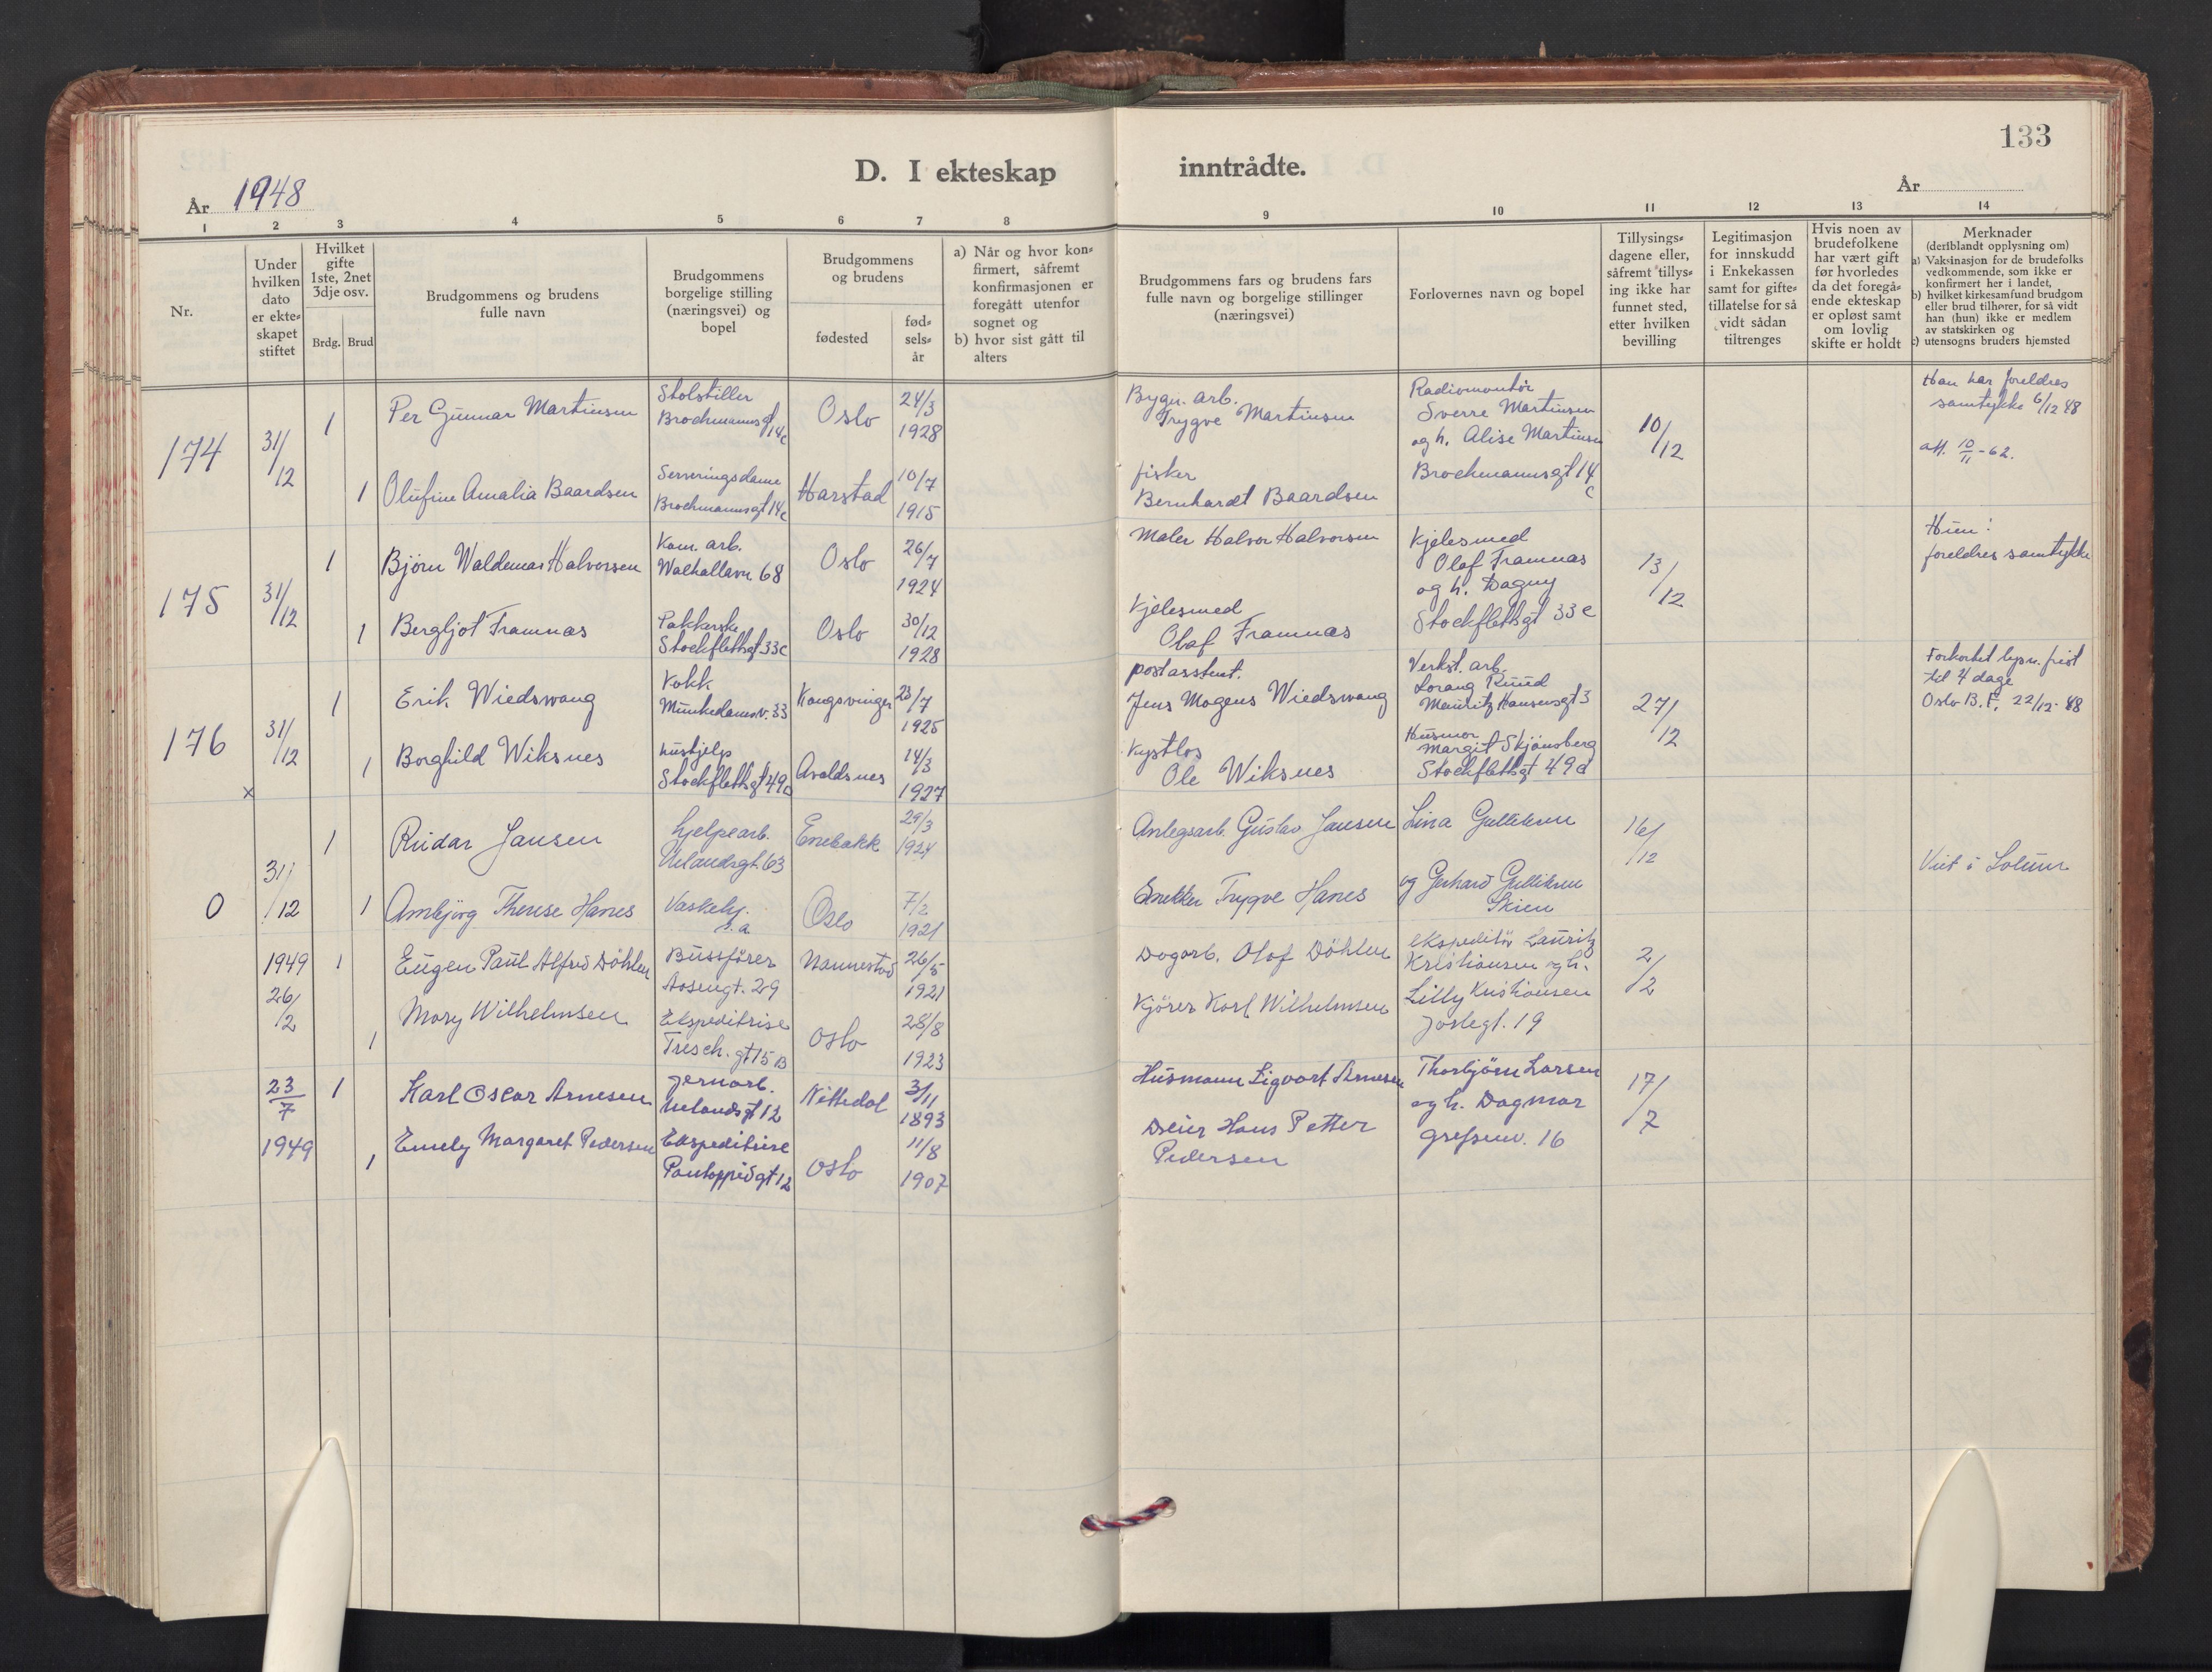 133
D. I ekteskap inntrådte.
År 1948
År
1 2 3 4 5 6 7 8 9 10 11 12 13 14
Nr.
Under
hvilken
dato
er ekte-
skapet
stiftet
Hvilket
gifte
1ste, 2net
3dje osv.
Brdg. Brud
Brudgommens og brudens
fulle navn
Brudgommens
borgelige stilling
(næringsvei) og
bopel
Brudgommens
og brudens
fødested
fød-
sels-
år
a) Når og hvor kon-
firmert, såfremt
konfirmasjonen er
foregått utenfor
sognet og
b) hvor sist gått til
alters
Brudgommens fars og brudens fars
fulle navn og borgelige stillinger
(næringsvei)
Forlovernes navn og bopel
Tillysings-
dagene eller,
såfremt tillys-
ing ikke har
funnet sted,
etter hvilken
bevilling
Legitimasjon
for innskudd
i Enkekassen
samt for gifte-
tillatelse for så
vidt sådan
tiltrenges
Hvis noen av
brudefolkene
har vært gift
før hvorledes
da det foregå-
ende ekteskap
er opløst samt
om lovlig
skifte er holdt
Merknader
(deriblandt opplysning om)
a) Vaksinasjon for de brudefolks
vedkommende, som ikke er
konfirmert her i landet,
b) hvilket kirkesamfund brudgom
eller brud tilhører, for så vidt
han (hun) ikke er medlem
av statskirken og
c) utensogns bruders hjemsted
174
31/12
1
Per Gunnar Martinsen
Stolstiller
Brochmannsgt
14c
Oslo
24/3
1928
Bygn. arb.
Trygve Martinsen
Radiomontör
Sverre Martinsen
og h. Alise Martinsen
Brochmannsgt 14
c
10/12
Han har foreldres
samtykke 6/12 48
att. 10/11 - 62.
1
Olufine Amalia Baardsen
Serveringsdame
Brochmannsgt 14c
Harstad
10/7
1915
fisker
Bernhardt Baardsen
175
31/12
1
Björn Waldemar Halvorsen
Kom. arb.
Walhallavn. 68
Oslo
26/7
1924
Maler Halvor Halvorsen
Kjelesmed
Olaf Framnæs
og h. Dagny
Stockflethsgt 33c
13/12
Hun:
foreldres samtykke
1
Bergljot Framnæs
Pakkerske
Stockflethsgt 33c
Oslo
30/12
1928
Kjelesmed
Olaf Framnæs
176
31/12
1
Erik Wiedswang
Kokk
Munkedamsv. 33
Kongsvinger
23/7
1925
postasstent.
Jens Mogens Wiedswang
Verkst. arb.
Lorang Ruud
Mauritz Hansensgt 3
27/12
Forkortet lysn. frist
til 4 dage
Oslo B.F. 22/12-48
1
Borghild Wiksnes
hushjelp
Stockflethsgt 49a
Avaldsnes
14/3
1927
Kystlos
Ole Wiksnes
Husmor
Margit Skjönsberg
Stockflethsgt 49a
x
0
31/12
1
Reidar Jansen
hjelpearb.
Uelandsgt. 63
Enebakk
29/3
1924
Anlegsarb. Gustav Jansen
Lina Gulliksen
og Gerhard Gulliksen
Skien
16/12
Viet i Solum
1
Arnbjörg Therese Hanes
Vaskehj.
s.a
Oslo
7/2
1921
Snekker Trygve Hanes
1949
26/2
1
Eugen Paul Alfred Döhlen
Bussfører
Aasengt. 29
Nannestad
26/5
1921
Dagarb. Olaf Döhlen
ekspeditör Lauritz
Kristiansen og h.
Lilly Kristiansen
2/2
1
Mary Wilhelmsen
Ekspeditrise
Tresch. gt 15 B
Oslo
28/8
1923
Kjörer Karl Wilhelmsen
23/7
1949
1
Karl Oscar Arnesen
Jernarb.
Uelandsgt 12
Nittedal
3/11
1893
Husmann Sigvart Arnesen
Thorbjörn Larsen
og h. Dagmar
Grefsenv. 16
17/7
1
Emely Margaret Pedersen
Ekspeditrise
Pantoppidgt 12
Oslo
11/8
1907
Dreier Hans Petter
Pedersen